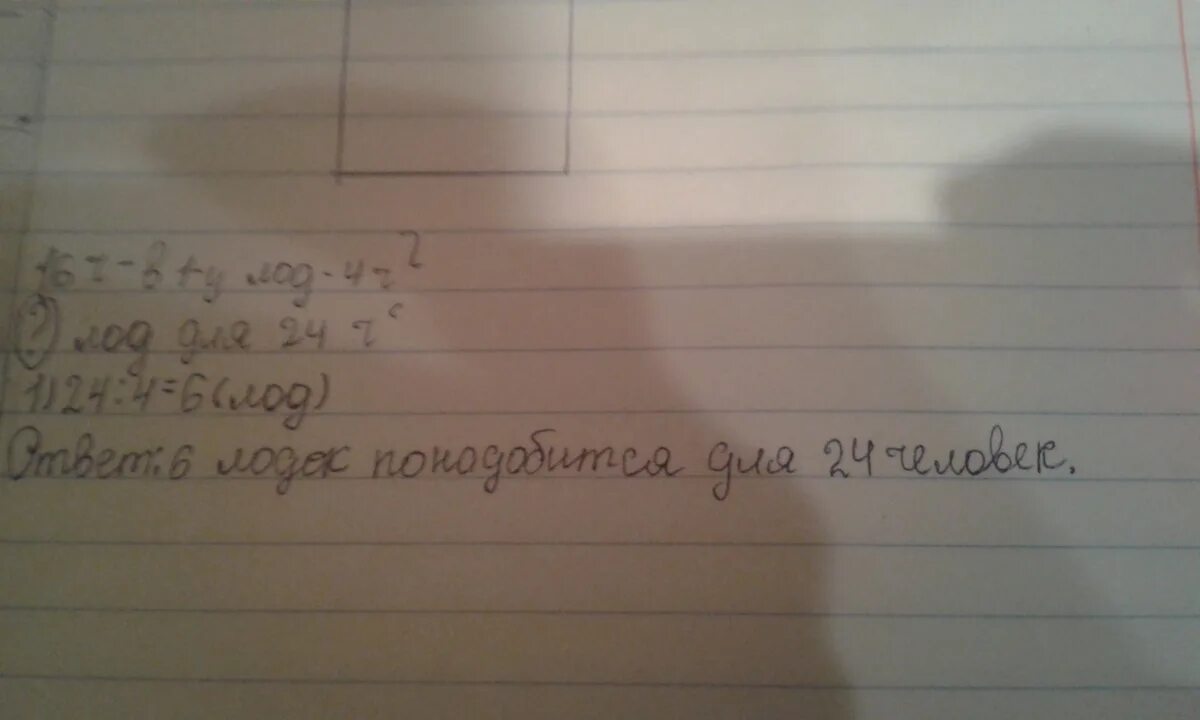 16 ч - в лод - 4 ч
? лод для 24 ч
1) 24:4=6(лод)
Ответ: 6 лодек понадобится для 24 человек.